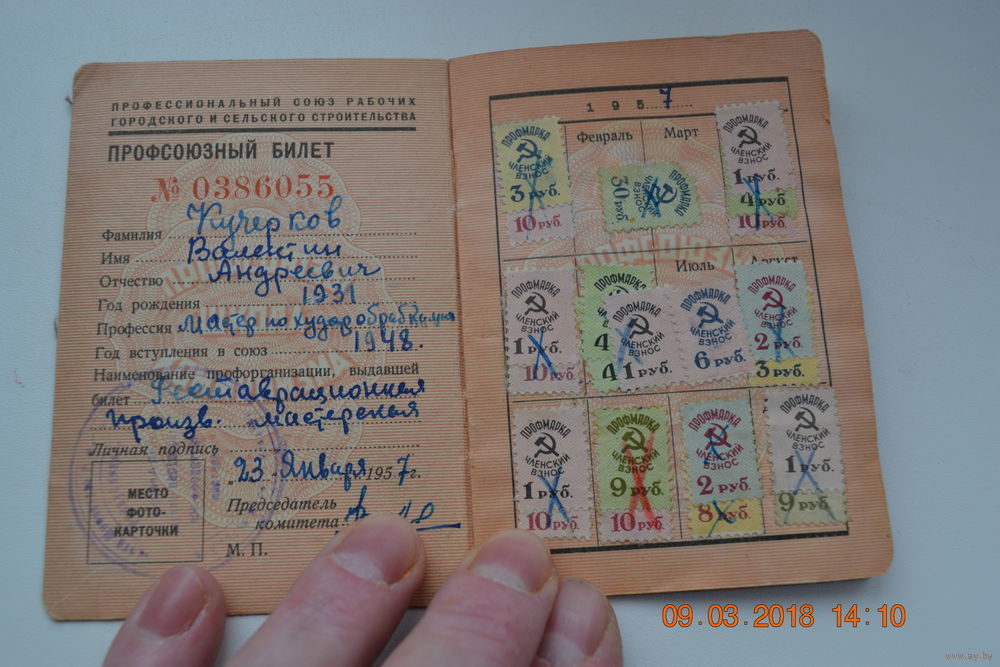 ПРОФЕССИОНАЛЬНЫЙ СОЮЗ РАБОЧИХ
ГОРОДСКОГО И СЕЛЬСКОГО СТРОИТЕЛЬСТВА
ПРОФСОЮЗНЫЙ БИЛЕТ
№ 0386055
Фамилия Кучерков
Имя Валентин
Отчество Андреевич
Год рождения 1931
Профессия Мастер по худ. обработке
Год вступления в союз 1948.
Наименование профорганизации, выдавшей
билет Реставрационная
произв. мастерская
Личная подпись
„23" Января 1957 г.
Председатель
комитета
МЕСТО
ФОТО-
КАРТОЧКИ
М. П.
1957
Февраль Март
ПРОФМАРКА
ЧЛЕНСКИЙ
ВЗНОС
3 РУБ.
10 РУБ.
ПРОФМАРКА
ЧЛЕНСКИЙ
ВЗНОС
30 РУБ.
ПРОФМАРКА
ЧЛЕНСКИЙ
ВЗНОС
1 РУБ.
4 РУБ.
10 РУБ.
Июль Август
ПРОФМАРКА
ЧЛЕНСКИЙ
ВЗНОС
1 РУБ.
10 РУБ.
ПРОФМАРКА
4
4
ПРОФМАРКА
ЧЛЕНСКИЙ
ВЗНОС
1 РУБ.
ПРОФМАРКА
ЧЛЕНСКИЙ
ВЗНОС
6 РУБ.
ПРОФМАРКА
ЧЛЕНСКИЙ
ВЗНОС
2 РУБ.
3 РУБ.
ПРОФМАРКА
ЧЛЕНСКИЙ
ВЗНОС
1 РУБ.
10 РУБ.
ПРОФМАРКА
ЧЛЕНСКИЙ
ВЗНОС
9 РУБ.
10 РУБ.
ПРОФМАРКА
ЧЛЕНСКИЙ
ВЗНОС
2 РУБ.
8 РУБ.
ПРОФМАРКА
ЧЛЕНСКИЙ
ВЗНОС
1 РУБ.
9 РУБ.
09.03.2018 14:10
www.ay.by